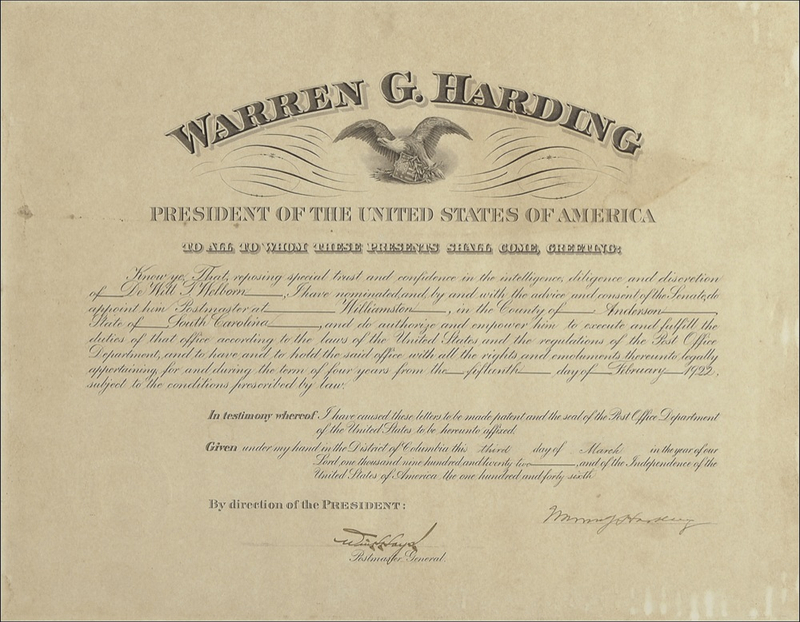 WARREN G. HARDING
PRESIDENT OF THE UNITED STATES OF AMERICA
TO ALL TO WHOM THESE PRESENTS SHALL COME, GREETING:
Know ye, That, reposing special trust and confidence in the intelligence, diligence and discretion
of De Witt T. Welborn, I have nominated, and, by and with the advice and consent of the Senate, do
appoint him Postmaster at Williamston, in the County of Anderson,
State of South Carolina, and do authorize and empower him to execute and fulfill the
duties of that office according to the laws of the United States and the regulations of the Post Office
Department, and to have and to hold the said office with all the rights and emoluments thereunto legally
appertaining, for and during the term of four years from the fifteenth day of February 1922,
subject to the conditions prescribed by law.
In testimony whereof, I have caused these letters to be made patent and the seal of the Post Office Department
of the United States, to be hereunto affixed.
Given under my hand in the District of Columbia this third day of March in the year of our
Lord, one thousand nine hundred and twenty two, and of the Independence of the
United States of America, the one hundred and forty sixth
By direction of the PRESIDENT:
Warren G Harding
Postmaster General.